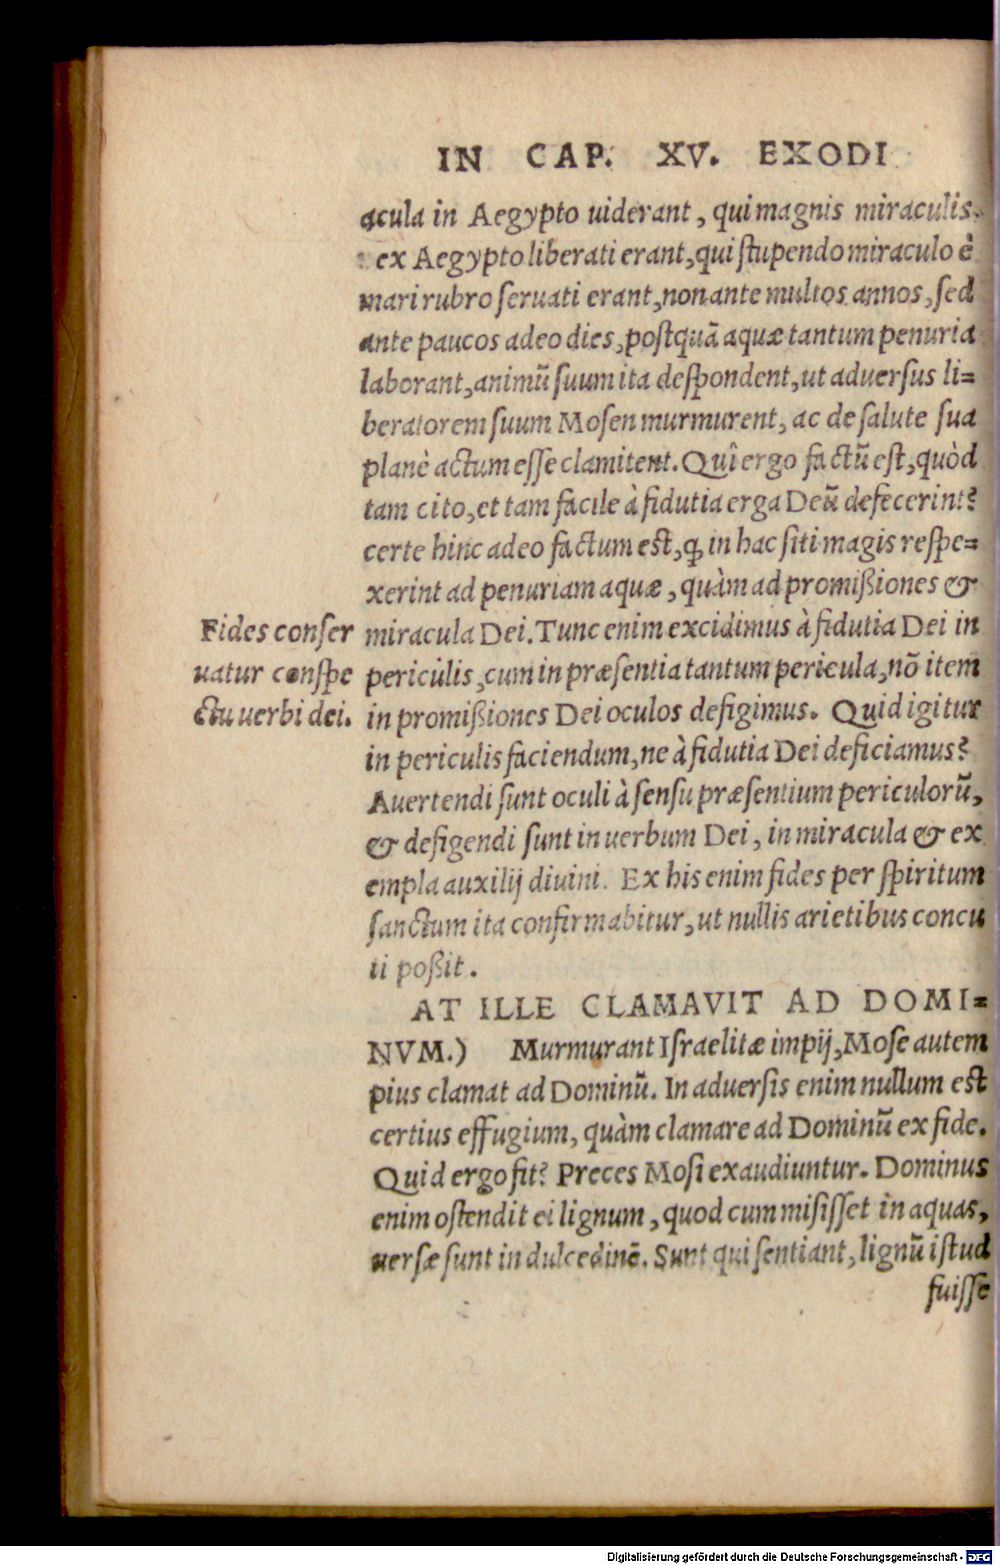 IN CAP. XV. EXODI
acula in Aegypto uiderant, qui magnis miraculis
ex Aegypto liberati erant, qui ſtupendo miraculo è
mari rubro ſeruati erant, non ante multos annos, ſed
ante paucos adeo dies, poſtquã aquæ tantum penuria
laborant, animũ ſuum ita deſpondent, ut aduerſus li=
beratorem ſuum Moſen murmurent, ac de ſalute ſua
planè actum eſſe clamitent. Quî ergo factũ eſt, quòd
tam cito, et tam facile à fidutia erga Deũ defecerint?
certe hinc adeo factum est, ꝙ in hac ſiti magis reſpe=
xerint ad penuriam aquæ, quàm ad promißiones &
Fides conſer
uatur conſpe
ctu uerbi dei.
miracula Dei. Tunc enim excidimus à fidutia Dei in
periculis, cum in præſentia tantum pericula, nõ item
in promißiones Dei oculos defigimus. Quid igitur
in periculis faciendum, ne à fidutia Dei deficiamus?
Auertendi ſunt oculi à ſenſu præſentium periculorũ,
& defigendi ſunt in uerbum Dei, in miracula & ex
empla auxilij diuini. Ex his enim fides per ſpiritum
ſanctum ita confirmabitur, ut nullis arietibus concu
ti poßit.
AT ILLE CLAMAVIT AD DOMI=
NVM.) Murmurant Iſraelitæ impij, Moſe autem
pius clamat ad Dominũ. In aduerſis enim nullum est
certius effugium, quàm clamare ad Dominũ ex fide.
Quid ergo fit? Preces Moſi exaudiuntur. Dominus
enim oſtendit ei lignum, quod cum miſiſſet in aquas,
uerſæ ſunt in dulcedinẽ. Sunt qui ſentiant, lignũ iſtud
fuiſſe
Digitalisierung gefördert durch die Deutsche Forschungsgemeinschaft - DFG